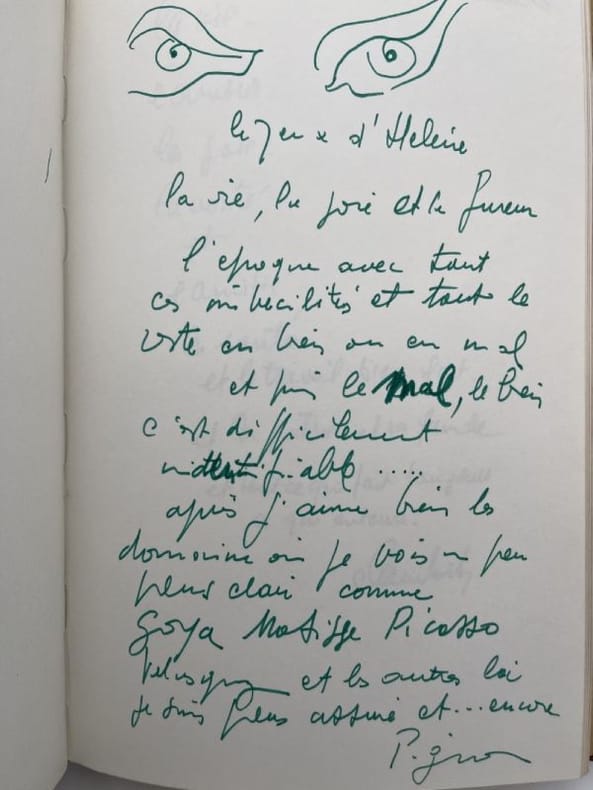 les yeux d'Helene
la vie, la joie et la fureur
l'époque avec tout
ces imbécilités et tout le
reste en bien ou en mal
et puis le mal, le bien
c'est difficilement
identifiable .....
après j'aime bien les
domaine où je vois un peu
plus clair comme
Goya Matisse Picasso
Velasquez et les autres là
je suis plus assuré et...encore
Pignon